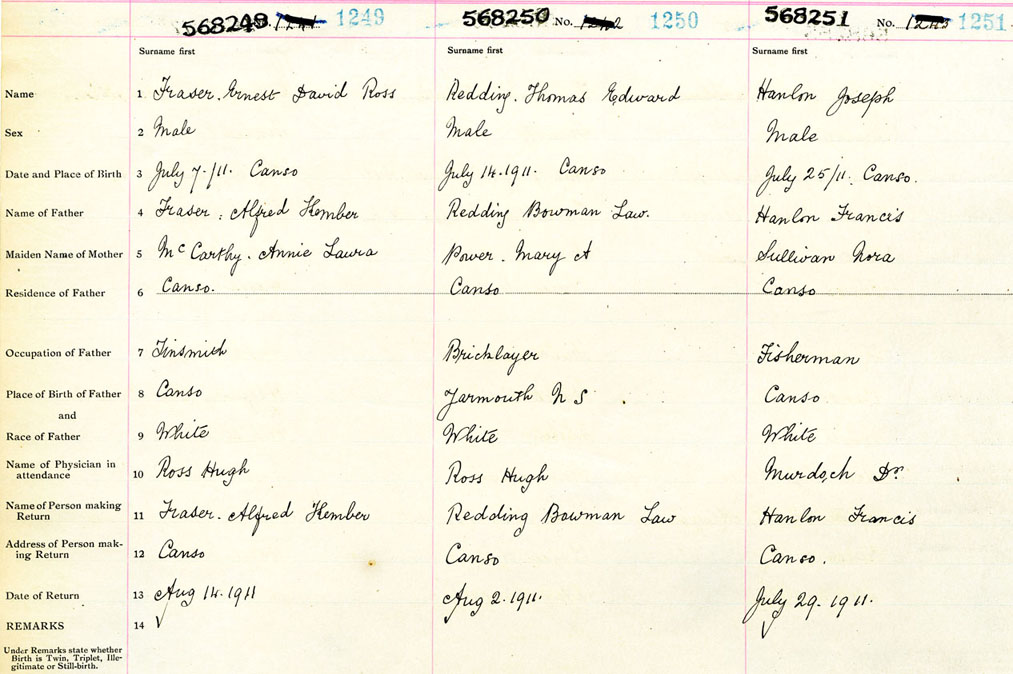 568249 1249 568250 No. 1250 568251 No. 1251
Surname first Surname first Surname first
Name 1 Fraser. Ernest David Ross Redding. Thomas Edward Hanlon Joseph
Sex 2 Male Male Male
Date and Place of Birth 3 July 7-/11. Canso July 14.1911. Canso July 25/11. Canso.
Name of Father 4 Fraser. Alfred Kember Redding Bowman Law. Hanlon Francis
Maiden Name of Mother 5 McCarthy. Annie Laura Power. Mary A Sullivan Nora
Residence of Father 6 Canso. Canso Canso
Occupation of Father 7 Tinsmith Bricklayer Fisherman
Place of Birth of Father 8 Canso Yarmouth N S Canso
and
Race of Father 9 White White White
Name of Physician in
attendance 10 Ross Hugh Ross Hugh Murdoch Dr.
Name of Person making
Return 11 Fraser. Alfred Kember Redding Bowman Law Hanlon Francis
Address of Person mak-
ing Return 12 Canso Canso Canso.
Date of Return 13 Aug 14.1911 Aug 2.1911. July 29.1911.
REMARKS 14
Under Remarks state whether
Birth is Twin, Triplet, Ille-
gitimate or Still-birth.